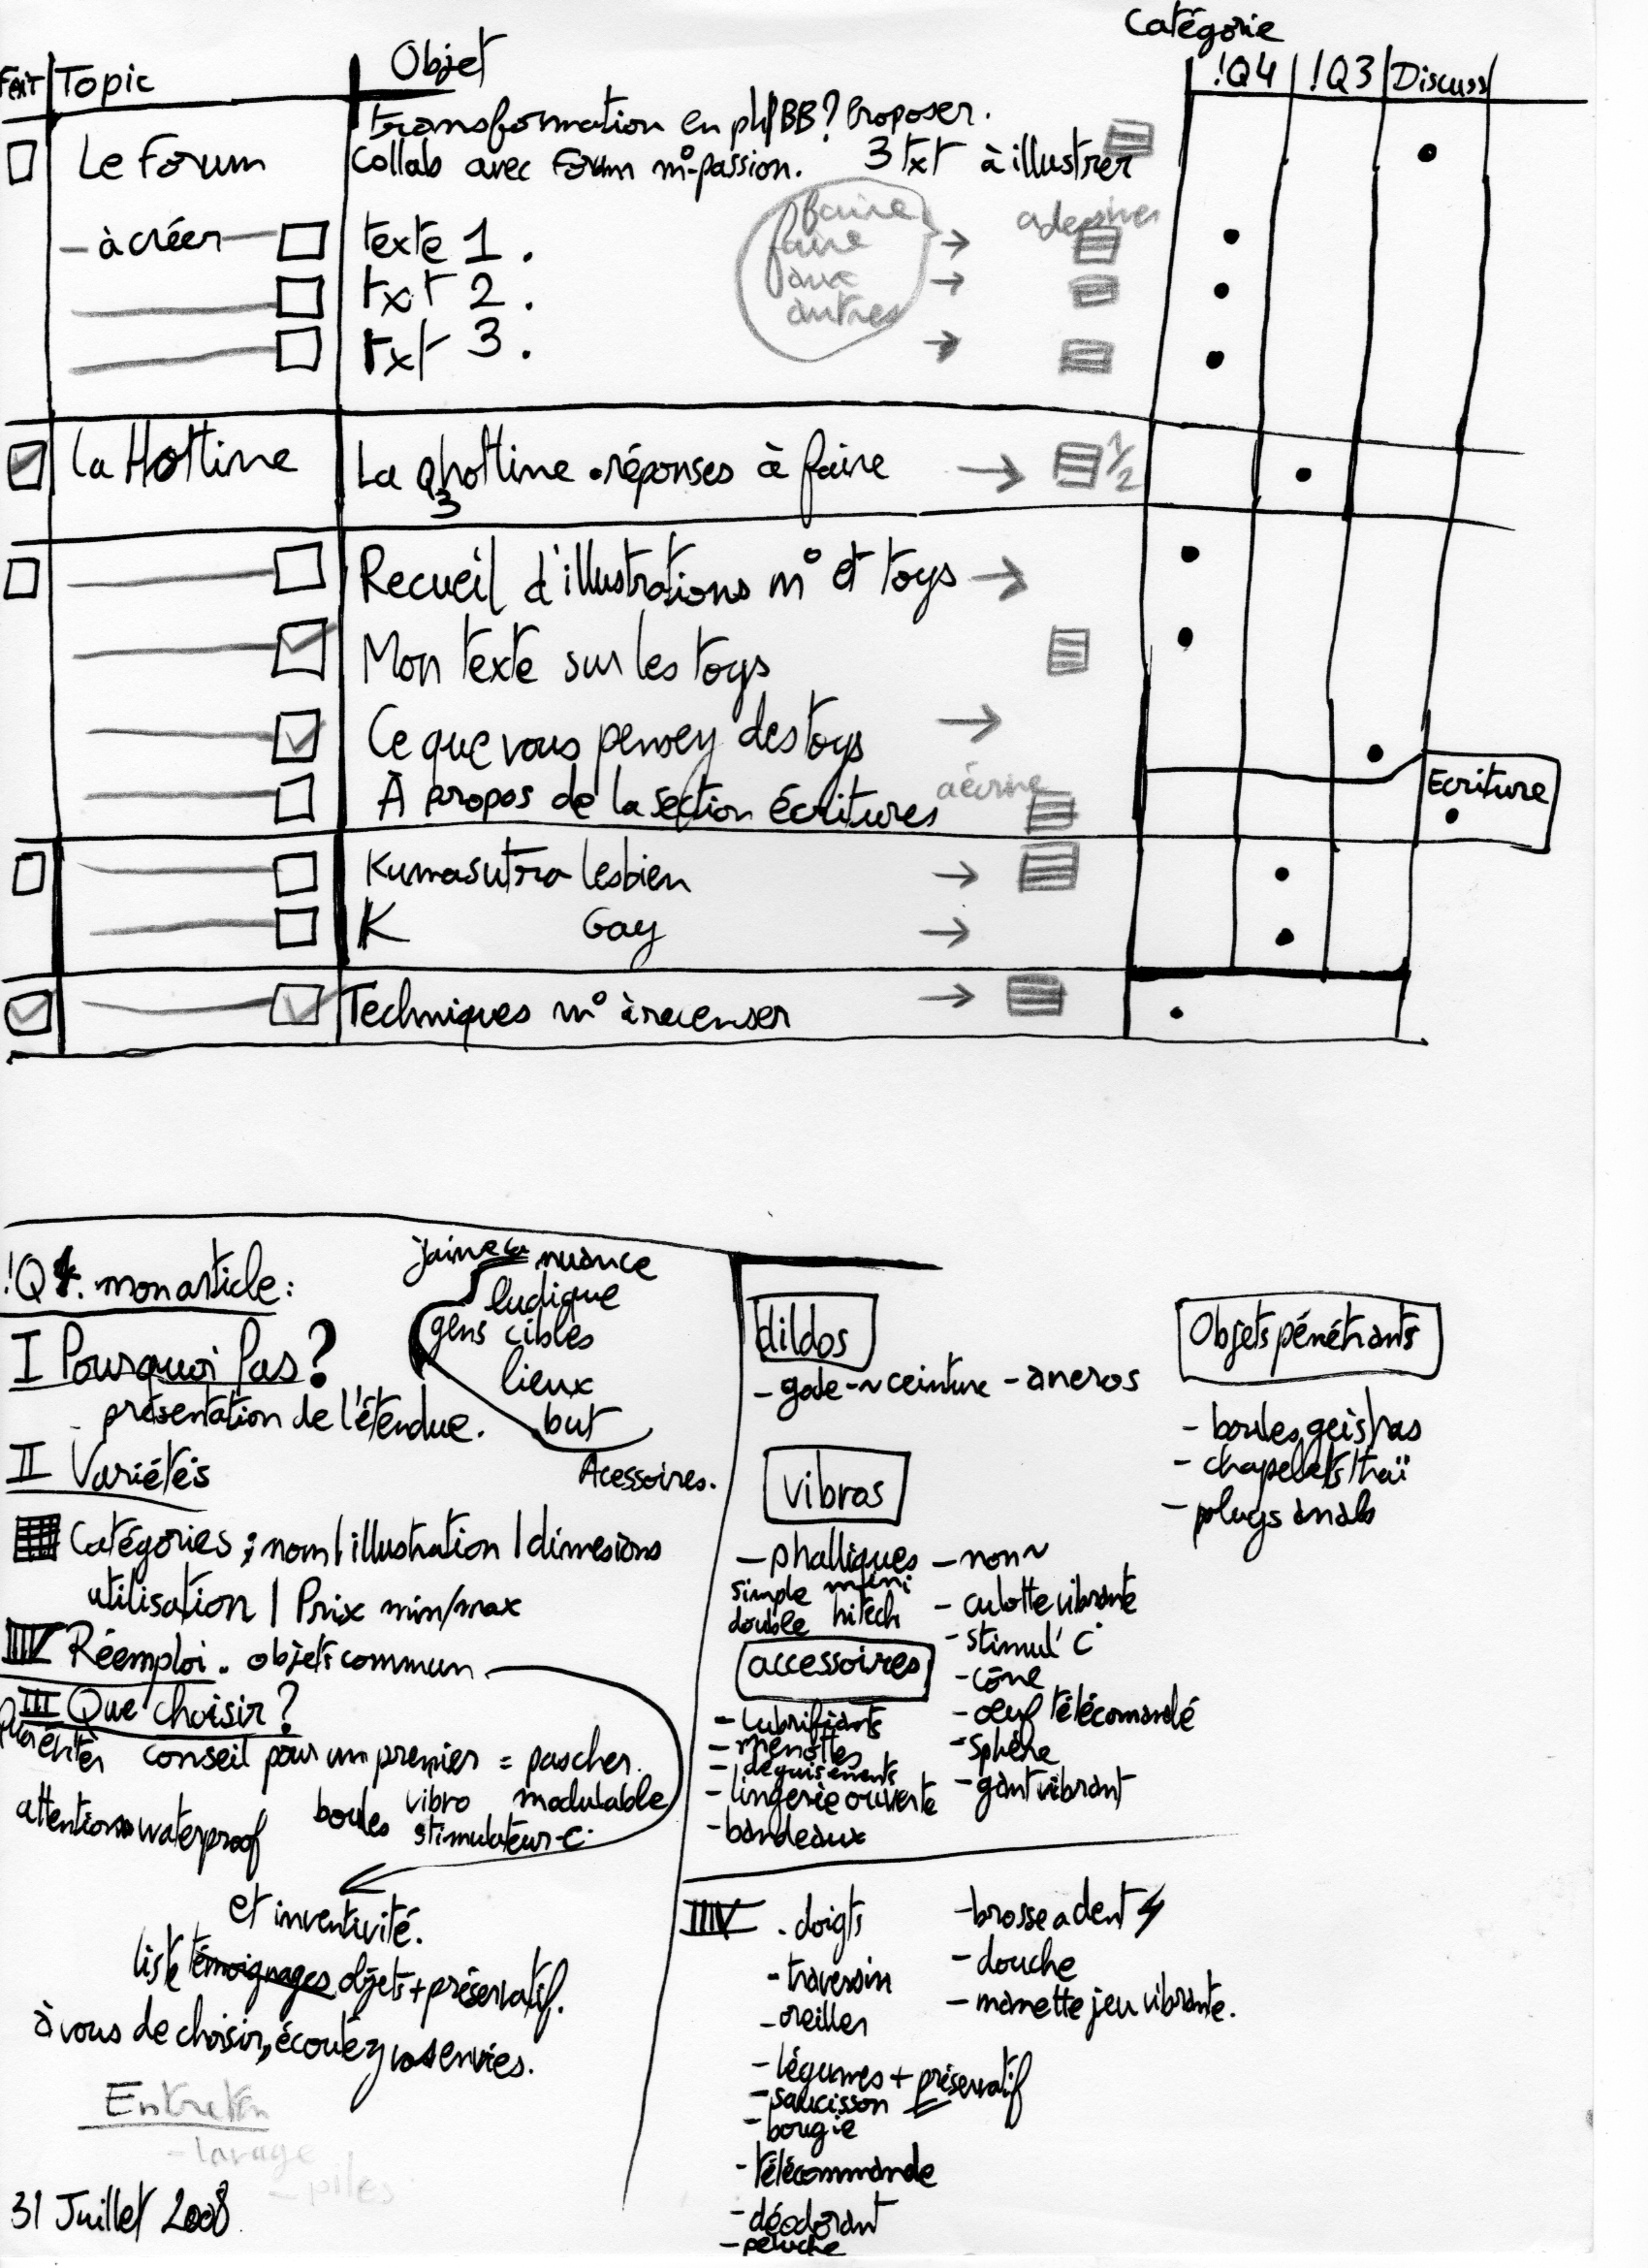 Catégorie
Fait Topic Objet !Q4 !Q3 Discuss
transformation en phpBB? Proposer.
Le Forum collab avec Forum m°-passion. 3 txt à illustrer
faire
- à créer texte 1. faire
txt 2. aux
autres
txt 3.
La Hotline La qhotline • réponses à faire 1/2
3
Recueil d'illustrations m° et toys
Mon texte sur les toys
Ce que vous pensez des toys
À propos de la section écritures à écrire Ecriture
Kumasutra lesbien
K Gay
Techniques m° à recenser
!Q4. mon article:
j'aime la nuance
ludique
gens cibles
lieux
but
Acessoires.
I Pourquoi Pas?
- présentation de l'étendue.
II Variétés
Catégories ; nom | illustration | dimesions
utilisation | Prix min/max
IIIV Réemploi. objets commun
III Que choisir?
conseil pour un premier = pas cher.
attention waterproof boules vibro modulable
stimulateur-c.
et inventivité.
liste témoignages objets + préservatif.
à vous de choisir, écoutez vos envies.
Entretien
- lavage
- piles
31 Juillet 2008
dildos
- gode - ~ ceinture - aneros
Objets pénétrants
- boules geishas
- chapelets thaï
- plugs anals
vibros
- phalliques
simple mini
double hitech
- non~
- culotte vibrante
- stimul' C
- cône
- oeuf télécomandé
- sphère
- gant vibrant
accessoires
- lubrifiants
- menottes
- déguisements
- lingerie ouverte
- bandeaux
IIIV . doigts
- traversin
- oreiller
- légumes + préservatif
- saucisson
- bougie
- télécommande
- déodorant
- peluche
- brosse a dent
- douche
- manette jeu vibrante.